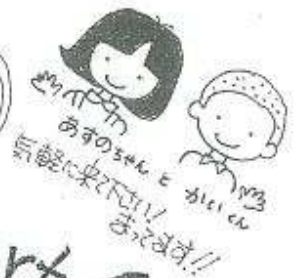 あすのちゃん と かいくん
気軽に来て下さい!
まってます!!